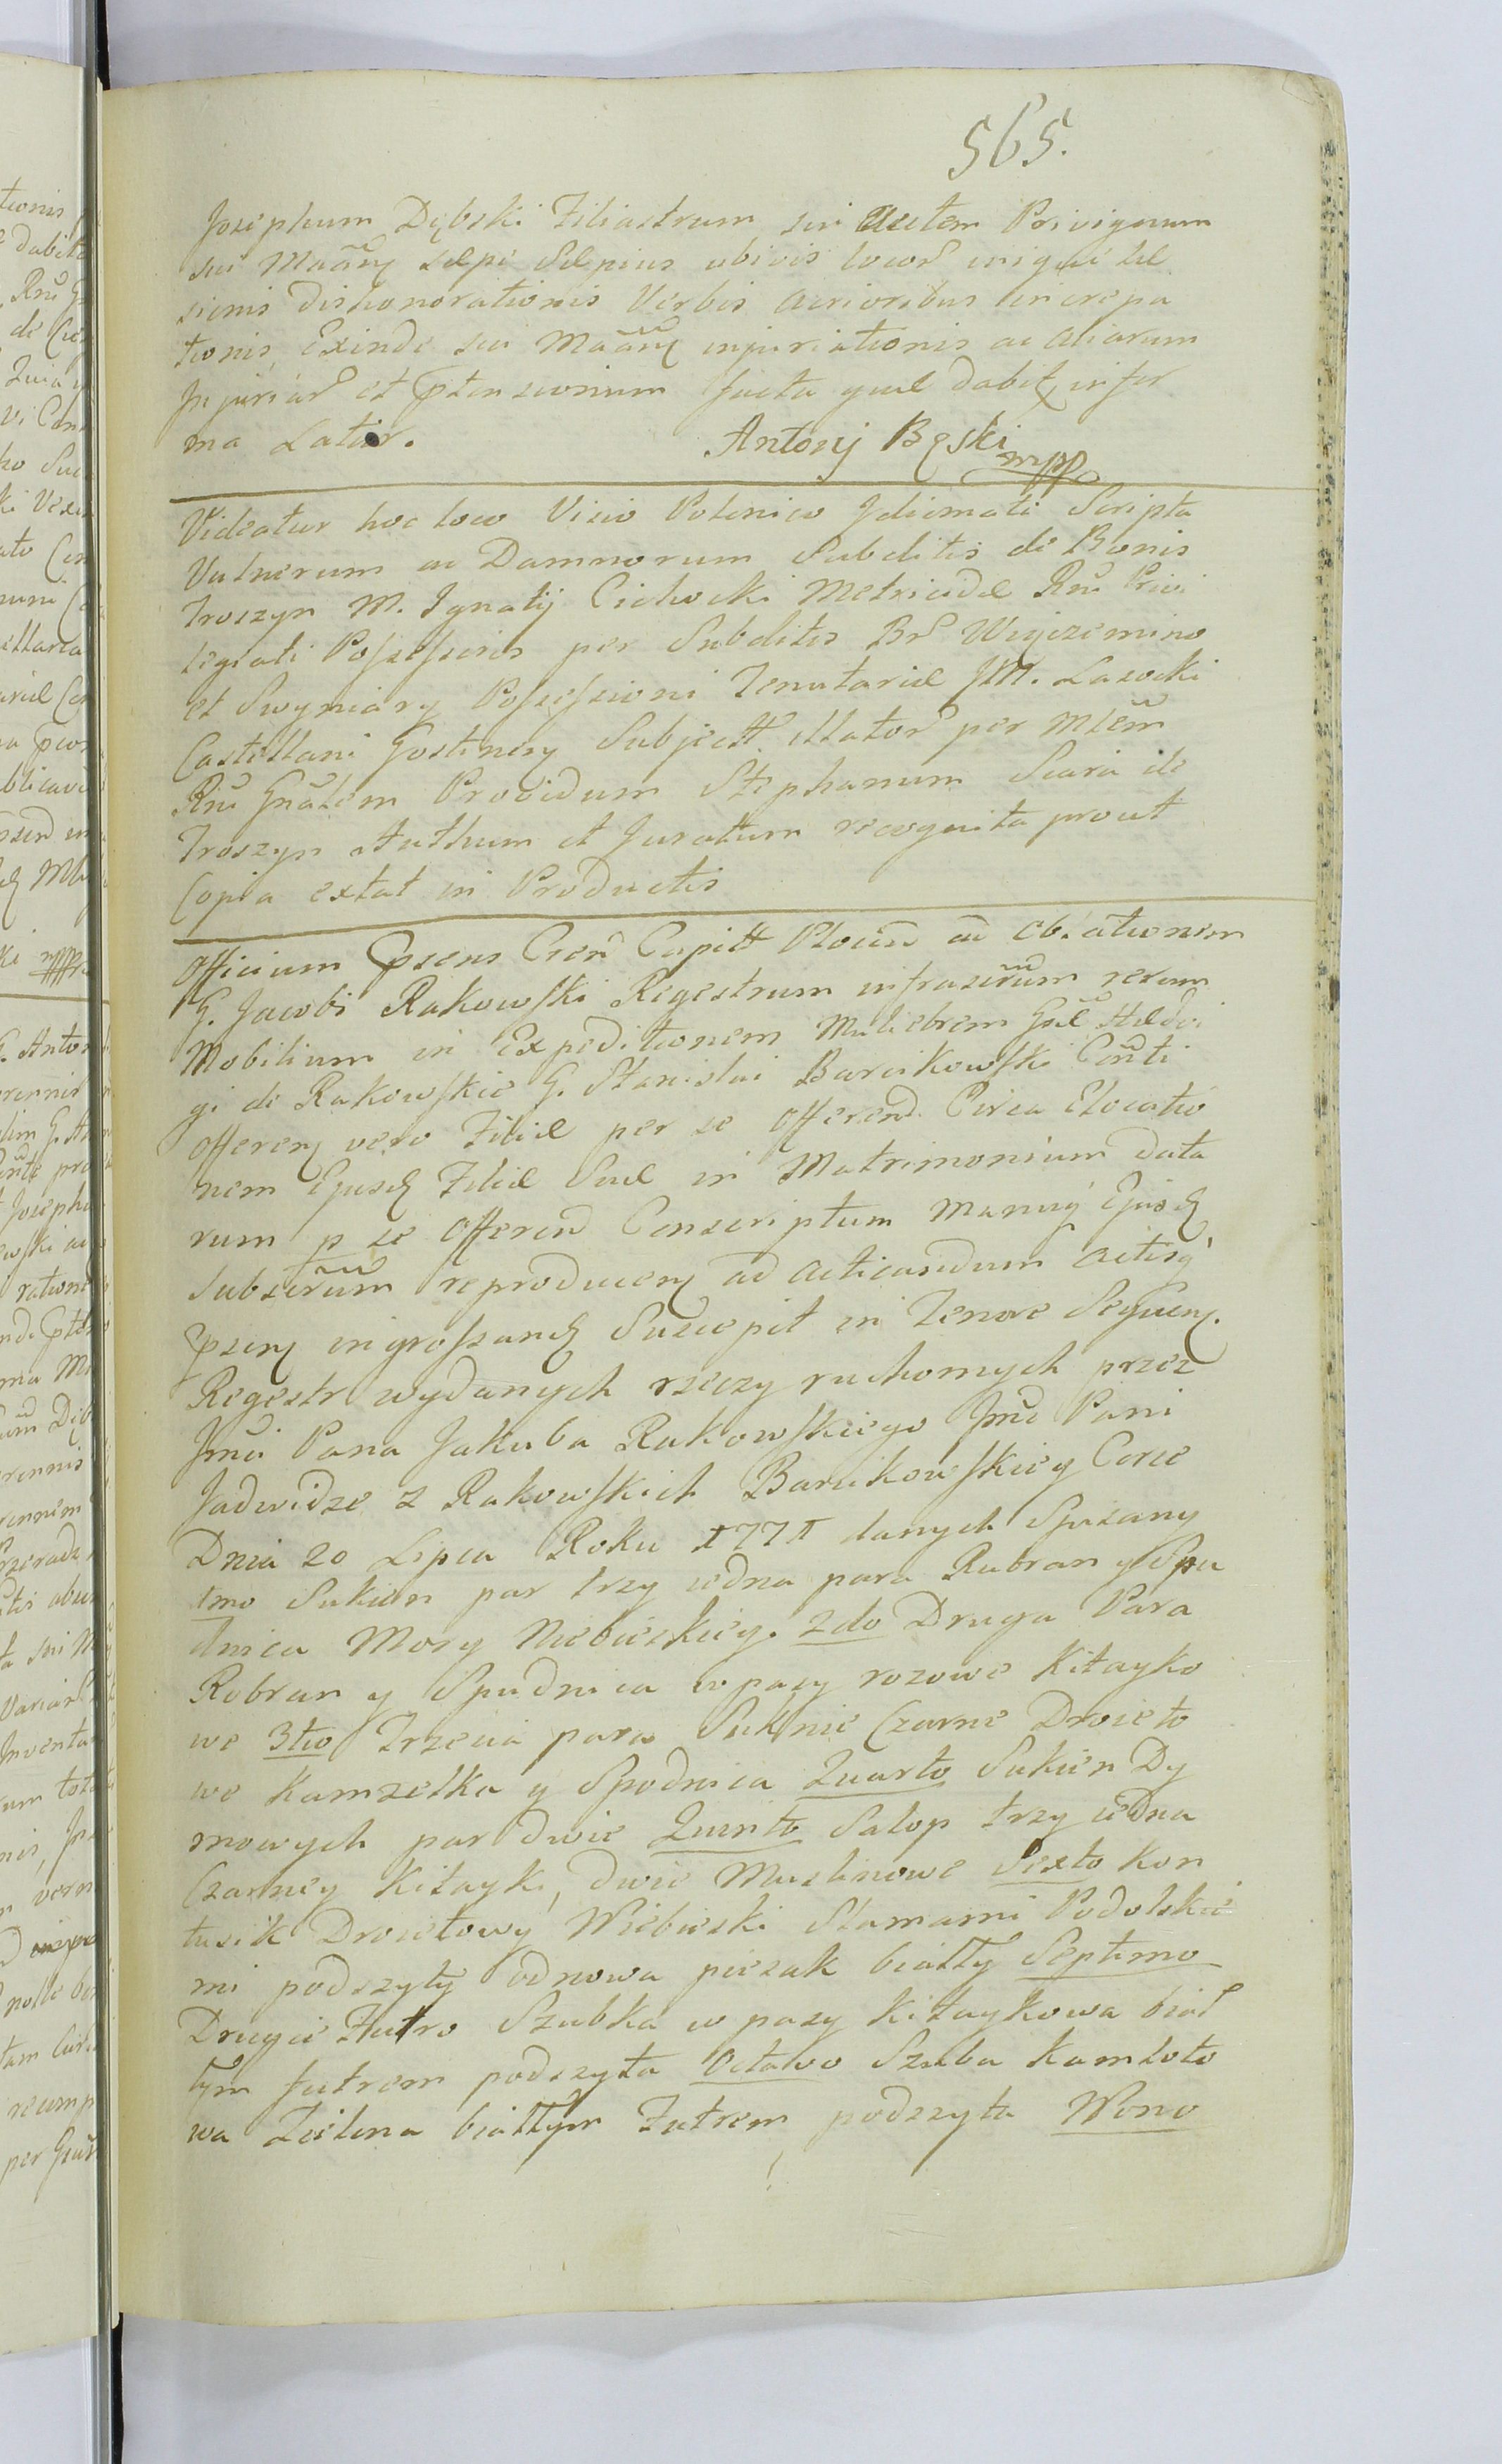 565.
Josephum Dębski Filiastrum sui autem Privignum
sui Maãnꝫ sæpe Sæpius ubivis locor iniquæ læ
sionis dishonorationis Verbis acrioribus increpa
tionis, Exinde sui Maãnꝫ injuriationis ac aliarum
Injuriar et Ptensionum facta quæ dabitꝫ in for
ma Latior. Antonj Bęski mpp
Videatur hoc loco Visio Polonico Jdiomate Scripta
Vulnerum ac Damnorum Subditis de Bonis
Troszyn M. Ignatij Cichocki Metricidæ Rni Privi
legiati Possessoris per Subditis Br Wiączemino
et Swyniary Possessioni Tenutariæ JM. Lasocki
Castellani Gostinen Subjectt. illator per Mlem
Rni Gnãlem Providum Stephanum Sicara de
Troszyn Authum et Juratum recognita prout
Copia extat in Productis
Officium Psens Cren Capitt Plocen ad Oblationem
G. Jacobi Rakowski Regestrum infrascrūm rerum
Mobilium in Expeditionem Muliebrem Gsæ Hædvi
gi de Rakowskie G. Stanislai Barcikowski Consti
offerenꝫ vero Filiæ per se Offerend. Circa Elocatio
nem Ejusdꝫ Filiæ Suæ in Matrimonium data
rum p se offeren Conscriptum Manuqꝫ Ejusdꝫ
Subscrūm reproducenꝫ ad acticandum actisqꝫ
Psenꝫ ingrossandꝫ Suscepit in Tenore Sequenꝫ.
Regestr wydanych rzeczy ruchomych przez
Jmci Pana Jakuba Rakowskiego Jmci Pani
Jadwidze z Rakowskich Barcikowskiey Corce
Dnia 20 Lipca Roku 1771 danych Spisany
1mo Sukien par trzy iedna para Rubran y Spu
dnica Mory Niebieskiey. 2do Druga Para
Robran y Spudnica w pasy rozowe Kitayko
we 3tio Trzecia para Suknie Czarne Droieto
we Kamzelka y Spodnica Quarto Sukien Dy
mowych par dwie Quinto Salop trzy iedna
Czarney Kitayki, dwie Muslinowe Sexto Kon
tusik Droietowy Niebieski Stamami Podolskie
mi podszyty odnowa piezak biatty Septimo
Drugie Futro Szubka w pasy Kitaykowa biał
tym futrem podszyta Octavo Szuba Kamloto
wa Zielona biattym Futrem podszyta Nono